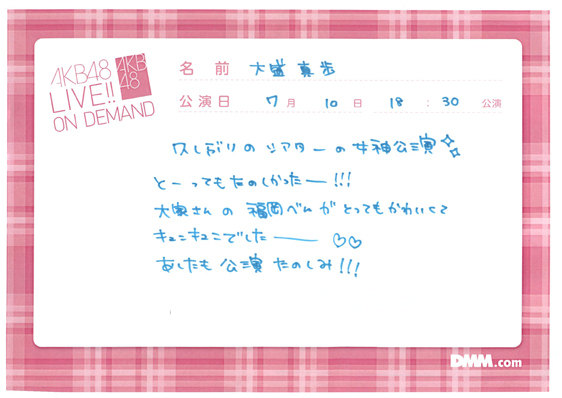 AKB48
LIVE!!
ON DEMAND
AKB
48
名前 大盛真歩
公演日 7月 10日 18:30 公演
久しぶりのシアターの女神公演
とーってもたのしかったー!!!
大家さんの福岡べんがとってもかわいくて
キュンキュンでしたー
あしたも公演たのしみ!!!
DMM.com